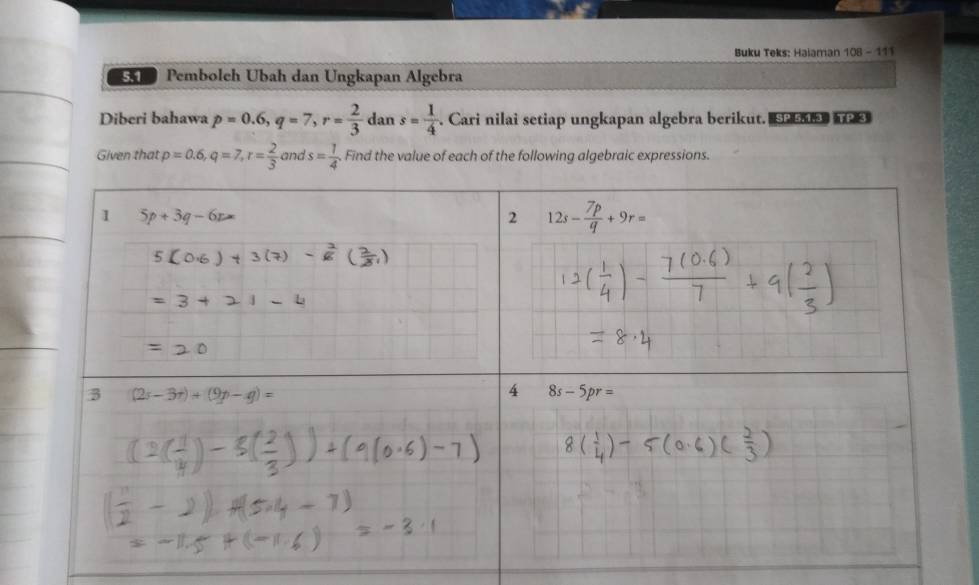 Buku Teks: Halaman 108 – 111
5.1 Pemboleh Ubah dan Ungkapan Algebra
Diberi bahawa p = 0.6, q = 7, r = 2/3 dan s = 1/4. Cari nilai setiap ungkapan algebra berikut. SP 5.1.3 TP 3
Given that p = 0.6, q = 7, r = 2/3 and s = 1/4. Find the value of each of the following algebraic expressions.
1 5p + 3q – 6r =
5(0.6) + 3(7) - 6 2 (2/3 1)
= 3 + 21 - 4
= 20
2 12s – 7p/q + 9r =
12(1/4) - 7(0.6)/7 + 9(2/3)
= 8.4
3 (2s – 3r) + (9p – q) =
(2(1/4) - 3(2/3)) + (9(0.6) - 7)
(1/2 - 2) + (5.4 - 7)
= -1.5 + (-1.6) = -3.1
4 8s – 5pr =
8(1/4) - 5(0.6)(2/3)